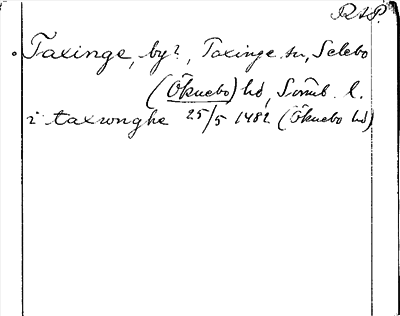 RAP.
Taxinge, by?, Taxinge sn, Selebo
(Öknebo) hd, Söml. l.
i taxwnghe 25/5 1482 (Öknebo hd)